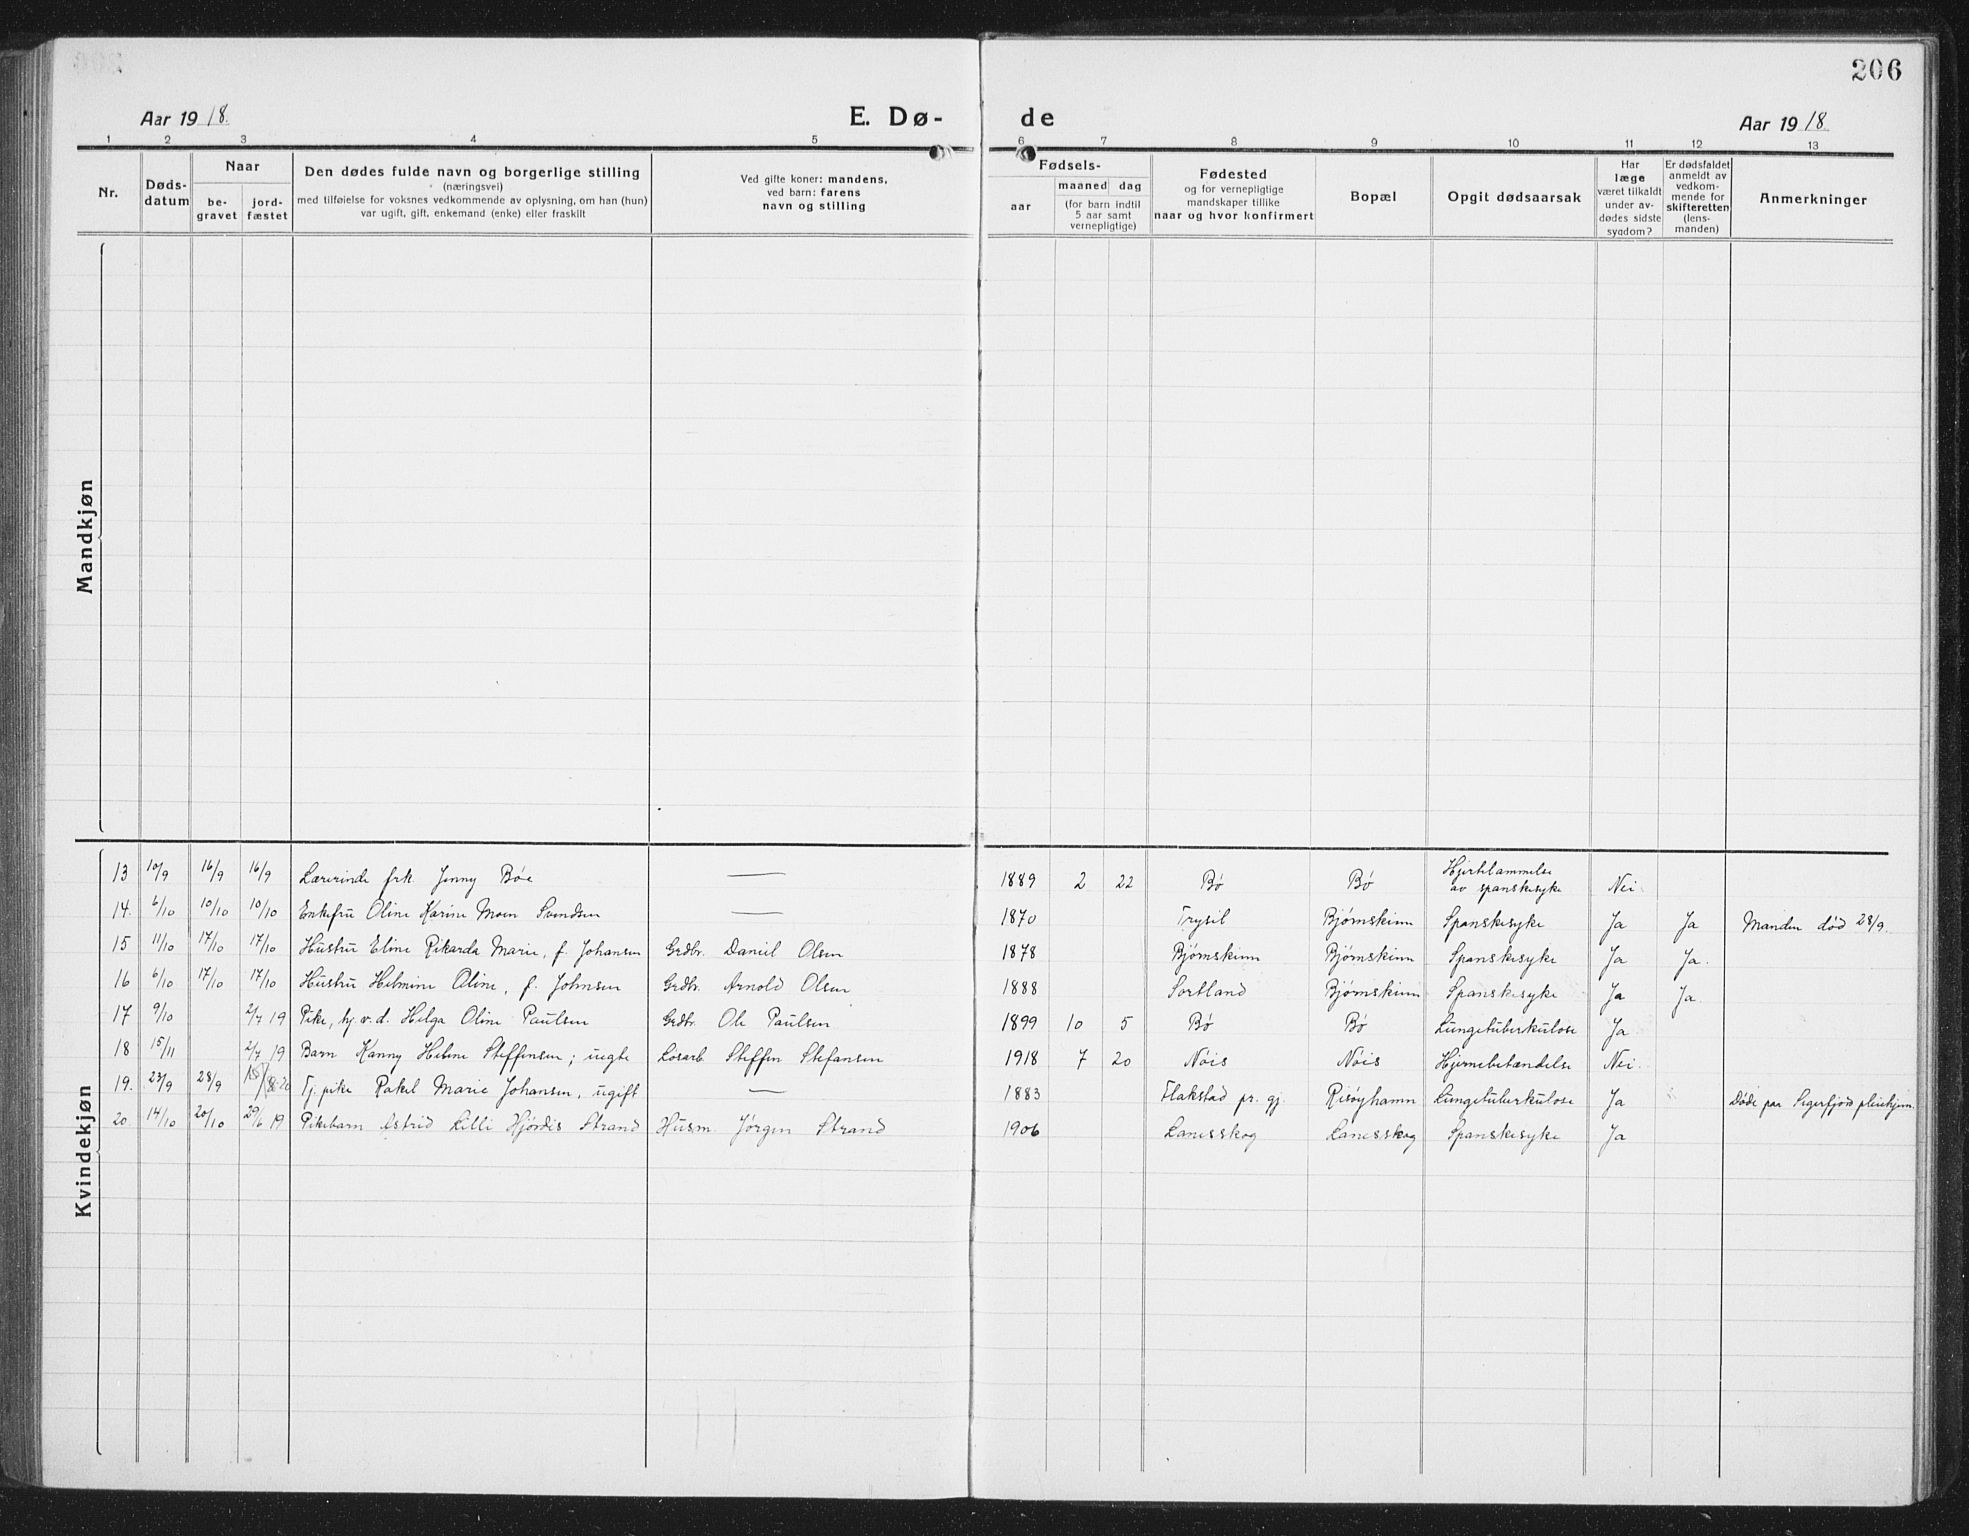 206
Aar 1918.
E. Dø-
de
Aar 1918
1 2 3 4 5 6 7 8 9 10 11 12 13
Nr.
Døds-
datum
Naar
be-
gravet
jord-
fæstet
Den dødes fulde navn og borgerlige stilling
(næringsvei)
med tilføielse for voksnes vedkommende av oplysning, om han (hun)
var ugift, gift, enkemand (enke) eller fraskilt
Ved gifte koner: mandens,
ved barn: farens
navn og stilling
Fødsels-
aar
maaned dag
(for barn indtil
5 aar samt
vernepligtige)
Fødested
og for vernepligtige
mandskaper tillike
naar og hvor konfirmert
Bopæl
Opgit dødsaarsak
Har
læge
været tilkaldt
under av-
dødes sidste
sygdom?
Er dødsfaldet
anmeldt av
vedkom-
mende for
skifteretten
(lens-
manden)
Anmerkninger
Mandkjøn
Kvindekjøn
13 10/9 16/9 16/9 Lærerinde frk. Jenny Bøe — 1889 2 22 Bø Bø Hjertelammelse av spanskesyke Nei
14. 6/10 10/10 10/10 Enkefru Oline Karine Moen Svendsen — 1870 Trysil Bjørnskinn Spanskesyke Ja Ja Manden død 28/9.
15 11/10 17/10 17/10 Hustru Eline Rikarda Marie, f. Johansen Grdbr. Daniel Olsen 1878 Bjørnskinn Bjørnskinn Spanskesyke Ja Ja.
16 6/10 17/10 17/10 Hustru Helmine Oline, f. Johnsen Grdbr. Arnold Olsen 1888 Sortland Bjørnskinn Spanskesyke Ja Ja.
17 9/10 2/7 19 Pike, hj.v.d. Helga Oline Paulsen Grdbr. Ole Paulsen 1899 10 5 Bø Bø Lungetuberkulose Ja
18 15/11 2/7 19 Barn Hanny Helene Steffensen; uegte Løsarb. Steffen Stefansen 1918 7 20 Nøis Nøis Hjernebetændelse Nei.
19. 23/9 28/9 Tj.pike Rakel Marie Johansen, ugift — 1883 Flakstad pr.gj. Risøyhamn Lungetuberkulose Ja Døde paa Sigerfjord pleiehjem.
20. 14/10 20/10 29/6 19 Pikebarn Astrid Lilli Hjørdis Strand Husm. Jørgen Strand 1906 Lanesskog Lanesskog Spanskesyke Ja